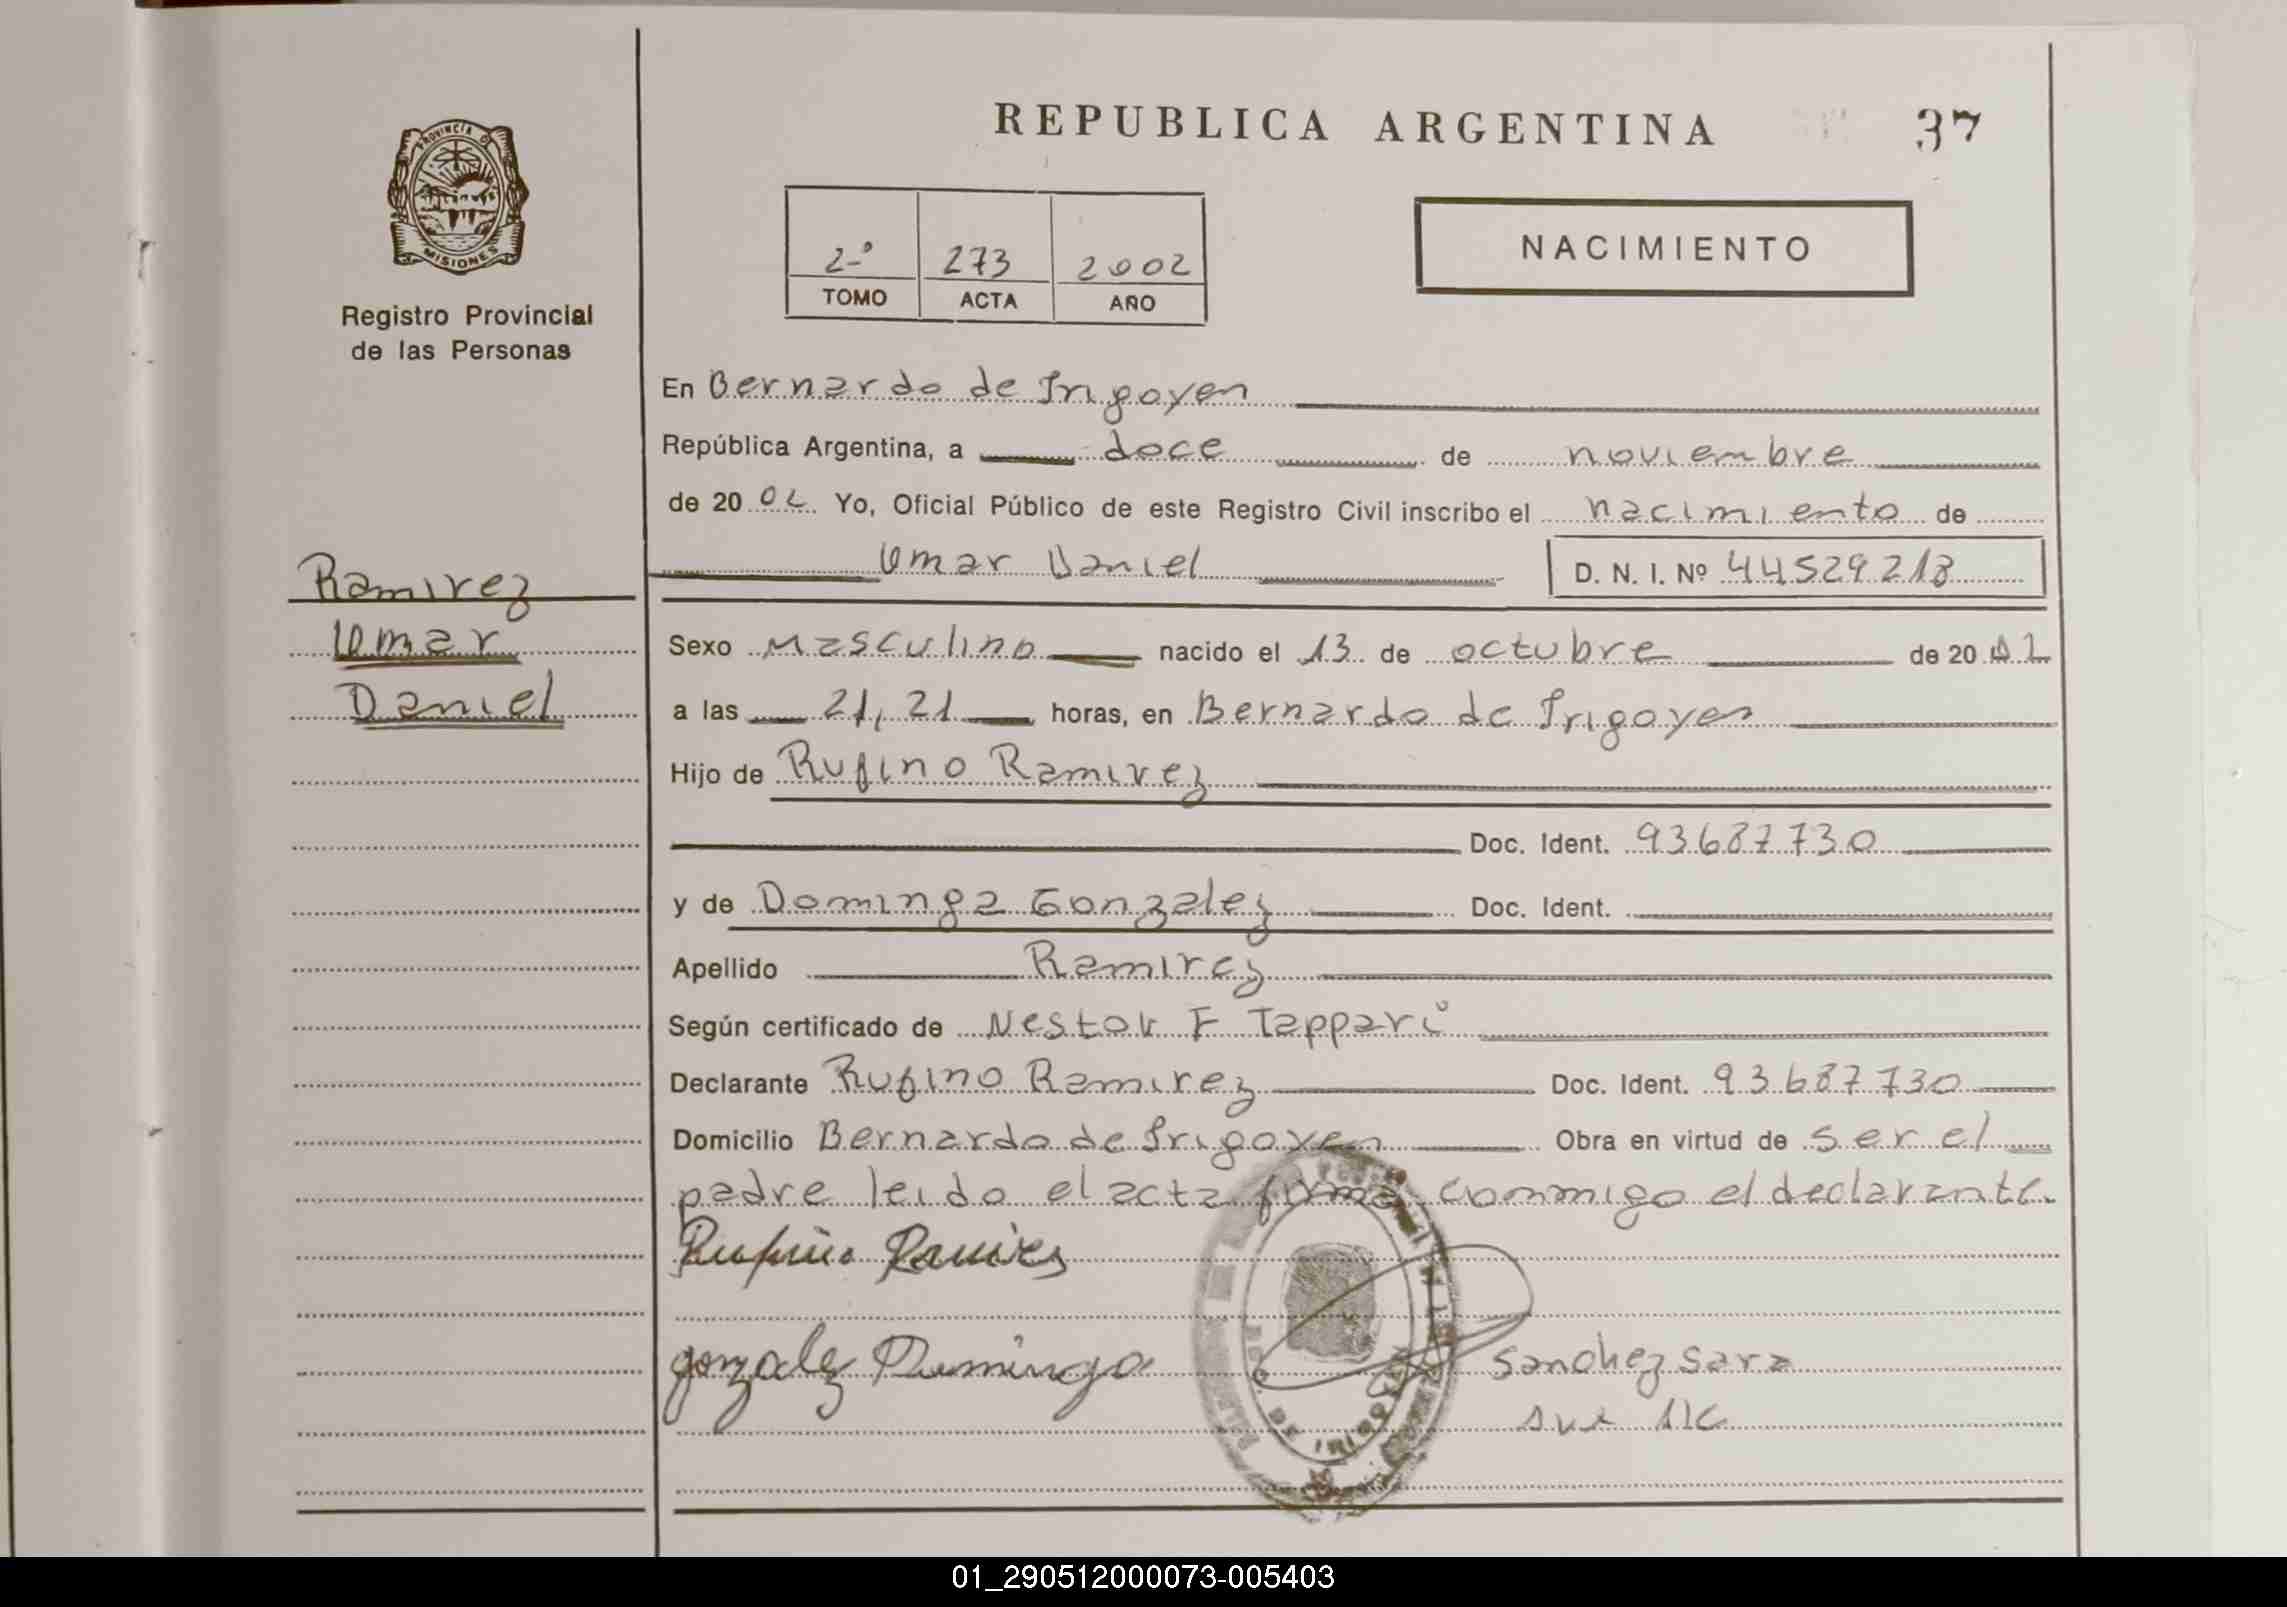 REPUBLICA ARGENTINA 37
PROVINCIA D
MISIONES
Registro Provincial
de las Personas
2º 273 2002
TOMO ACTA AÑO
NACIMIENTO
En Bernardo de Irigoyen
República Argentina, a doce de noviembre
de 2002 Yo, Oficial Público de este Registro Civil inscribo el nacimiento de
Omar Daniel D. N. I. Nº 44529213
Ramirez
Omar
Daniel
Sexo Masculino nacido el 13 de octubre de 2002
a las 21,21 horas, en Bernardo de Irigoyen
Hijo de Rufino Ramirez
Doc. Ident. 93687730
y de Dominga Gonzalez Doc. Ident.
Apellido Ramirez
Según certificado de Nestor F Tappari
Declarante Rufino Ramirez Doc. Ident. 93687730
Domicilio Bernardo de Irigoyen Obra en virtud de ser el
padre leido el acta firma conmigo el declarante
Rufino Ramires
gonzalez Dominga
Sanchez Sara
DE IRIGOYEN
01_290512000073-005403